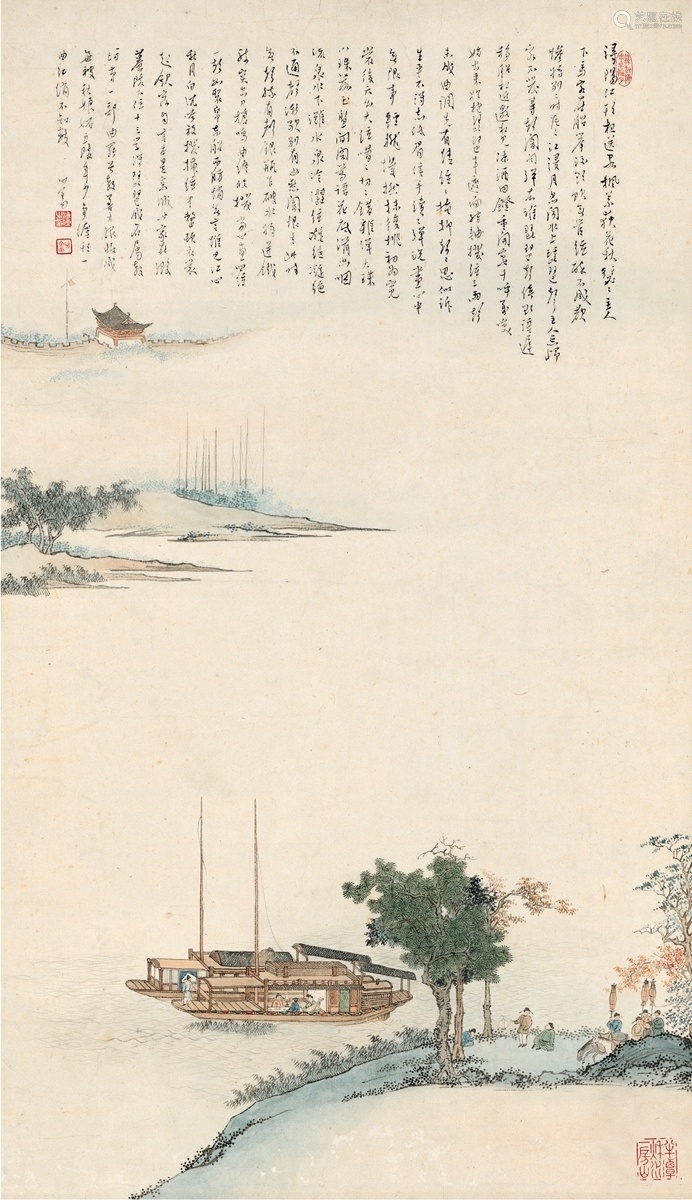 潯陽江頭夜送客楓葉荻花秋瑟々主人
下馬客在船舉酒欲飲無管絃醉不成歡
慘將別別時茫々江浸月忽聞水上琵琶聲主人忘歸
客不發尋聲闇問彈者誰琵琶聲停欲語遲
移船相近邀相見添酒回鐙重開宴千呼萬喚
始出來猶抱琵琶半遮面轉軸撥絃三兩聲
未成曲調先有情絃々掩抑聲々思似訴
生平不得志低眉信手續々彈說盡心中
無限事輕攏慢撚抹復挑初為霓
裳後六幺大絃嘈々切々錯雜彈大珠
小珠落玉盤間關鶯語花底滑幽咽
流泉水下灘水泉冷澀絃凝絕凝絕
不通聲漸歇別有幽愁闇恨生此時
無聲勝有聲銀瓶乍破水漿迸鐵
騎突出刀槍鳴曲終收撥當心畫四絃
一聲如裂帛東船西舫悄無言惟見江心
秋月白沈吟放撥插絃中整頓衣裳
起斂容自言本是京城女家在蝦
蟇陵下住十三學得琵琶成名屬教
坊第一部曲罷常教善才服妝成
每被秋娘妬五陵年少爭纏頭一
曲紅綃不知數
心畬
半潭秋水一房山
艺狐在线
www.artfoxlive.com